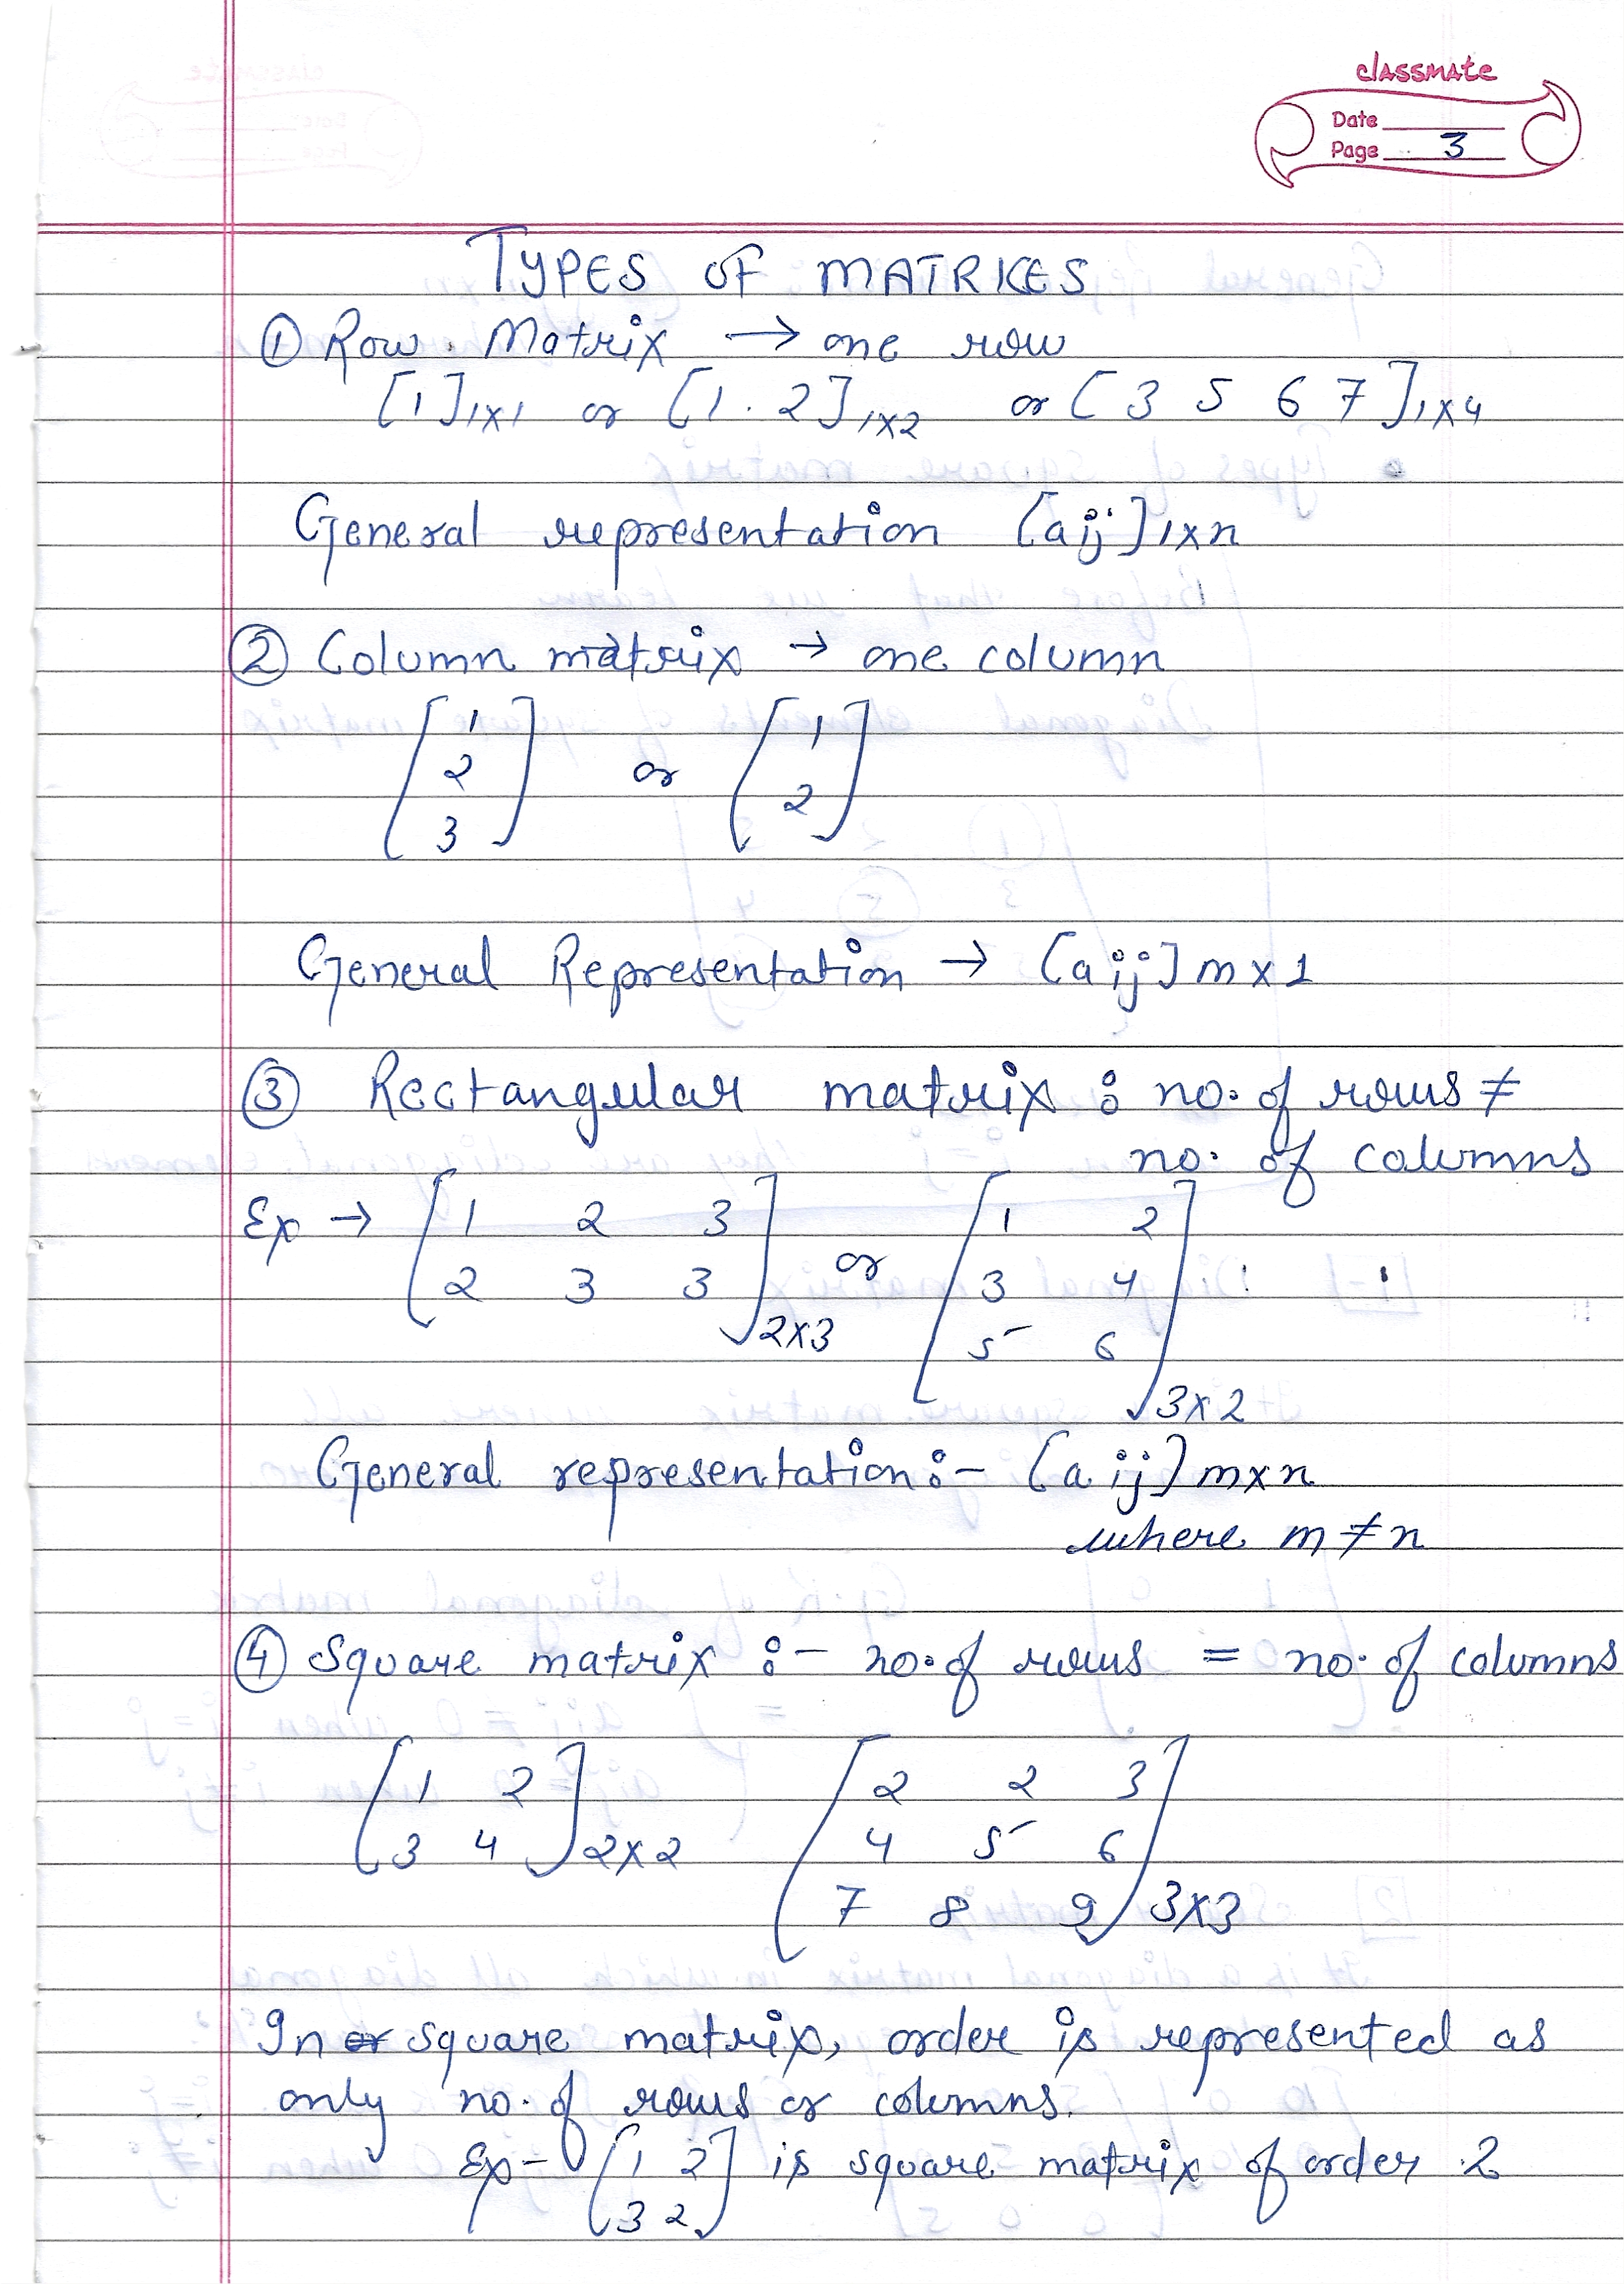 classmate
Date
Page 3
TYPES OF MATRICES
① Row Matrix → one row
[1]1x1 or [1 2]1x2 or [3 5 6 7]1x4
General representation [aij]1xn
② Column matrix → one column
[1
2
3] or [1
2]
General Representation → [aij]mx1
③ Rectangular matrix : no. of rows ≠
no. of columns
Ex → [1 2 3
2 3 3]2x3 or [1 2
3 4
5 6]3x2
General representation :- [aij]mxn
where m ≠ n
④ Square matrix :- no. of rows = no. of columns
[1 2
3 4]2x2 [2 2 3
4 5 6
7 8 9]3x3
In square matrix, order is represented as
only no. of rows or columns.
Ex - [1 2
3 2] is square matrix of order 2